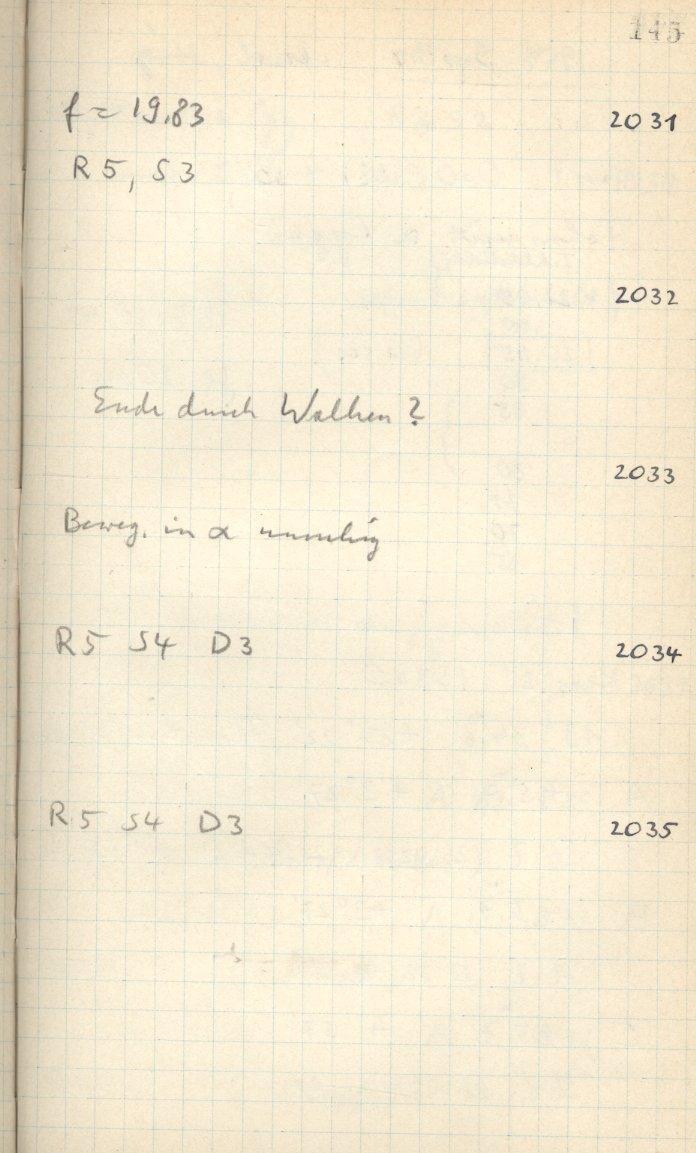 145
f = 19,83 2031
R 5, S 3
2032
Ende durch Wolken ?
2033
Beweg. in α unruhig
R5 S4 D3 2034
R5 S4 D3 2035